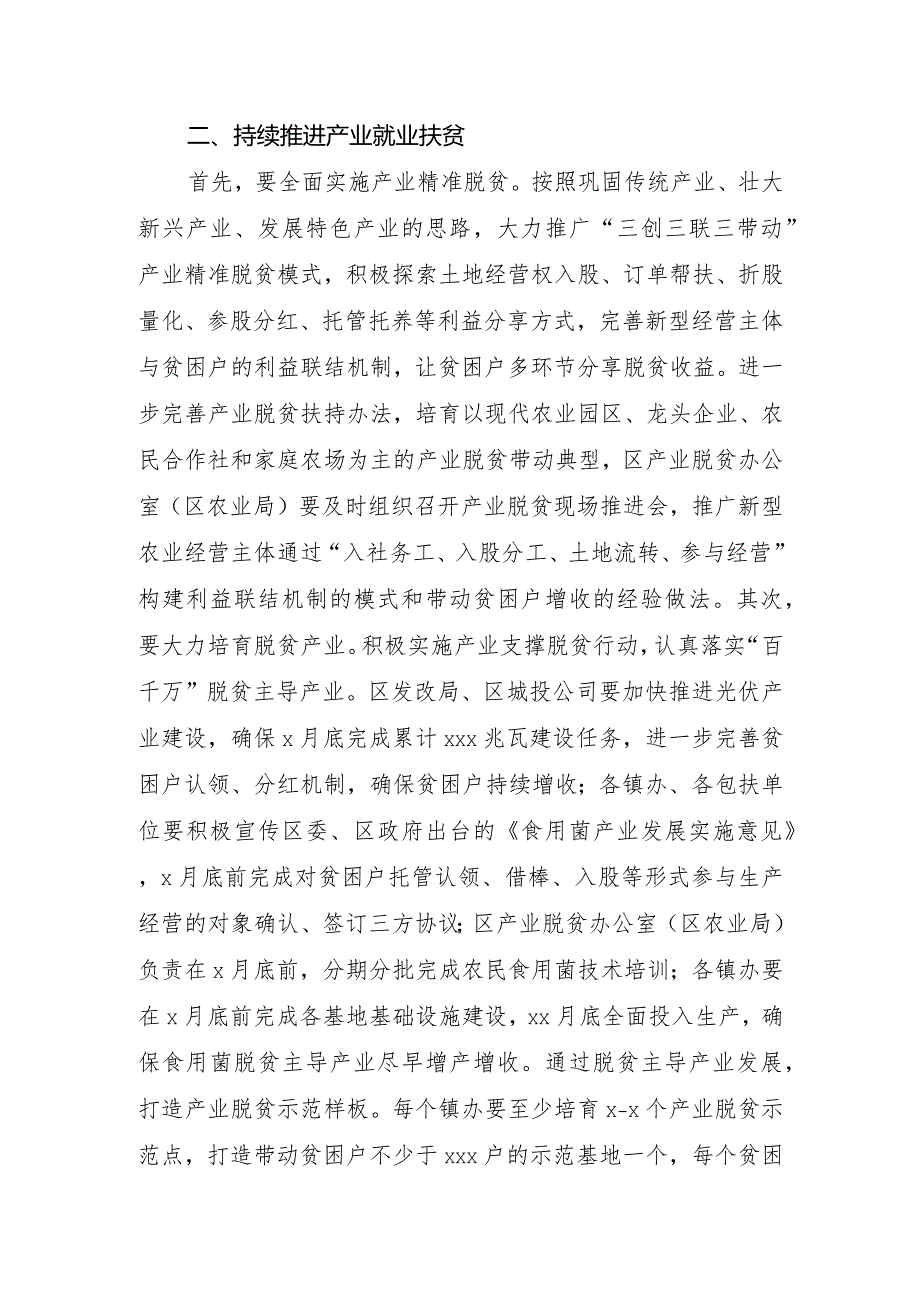 二、持续推进产业就业扶贫
首先，要全面实施产业精准脱贫。按照巩固传统产业、壮大
新兴产业、发展特色产业的思路，大力推广“三创三联三带动”
产业精准脱贫模式，积极探索土地经营权入股、订单帮扶、折股
量化、参股分红、托管托养等利益分享方式，完善新型经营主体
与贫困户的利益联结机制，让贫困户多环节分享脱贫收益。进一
步完善产业脱贫扶持办法，培育以现代农业园区、龙头企业、农
民合作社和家庭农场为主的产业脱贫带动典型，区产业脱贫办公
室（区农业局）要及时组织召开产业脱贫现场推进会，推广新型
农业经营主体通过“入社务工、入股分工、土地流转、参与经营”
构建利益联结机制的模式和带动贫困户增收的经验做法。其次，
要大力培育脱贫产业。积极实施产业支撑脱贫行动，认真落实“百
千万”脱贫主导产业。区发改局、区城投公司要加快推进光伏产
业建设，确保x月底完成累计xxx兆瓦建设任务，进一步完善贫
困户认领、分红机制，确保贫困户持续增收；各镇办、各包扶单
位要积极宣传区委、区政府出台的《食用菌产业发展实施意见》
，x月底前完成对贫困户托管认领、借棒、入股等形式参与生产
经营的对象确认、签订三方协议；区产业脱贫办公室（区农业局）
负责在x月底前，分期分批完成农民食用菌技术培训；各镇办要
在x月底前完成各基地基础设施建设，xx月底全面投入生产，确
保食用菌脱贫主导产业尽早增产增收。通过脱贫主导产业发展，
打造产业脱贫示范样板。每个镇办要至少培育x-x个产业脱贫示
范点，打造带动贫困户不少于xxx户的示范基地一个，每个贫困